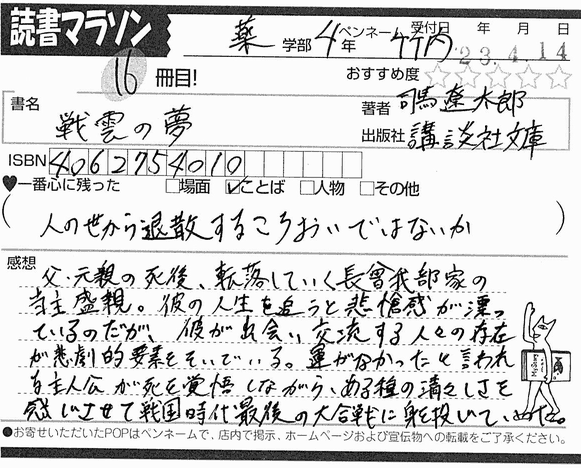 読書マラソン
薬 学部 4年 ペンネーム 竹内 受付日 年 月 日
23.4.14
16 冊目!
おすすめ度 ☆☆☆☆☆
書名 戦雲の夢
著者 司馬遼太郎
出版社 講談社文庫
ISBN 4062754010
♥一番心に残った □場面 ☑ことば □人物 □その他
(人の世から退散するころおいではないか)
感想
父・元親の死後、転落していく長曾我部家の
当主盛親。彼の人生を追うと悲愴感が漂っ
ているのだが、彼が出会い、交流する人々の存在
が悲劇的要素をそいでいる。運がなかったと言われ
る主人公が死を覚悟しながら、ある種の清々しさを
感じさせて戦国時代最後の大合戦に身を投じて
●お寄せいただいたPOPはペンネームで、店内で掲示、ホームページおよび宣伝物への転載をご了承ください。